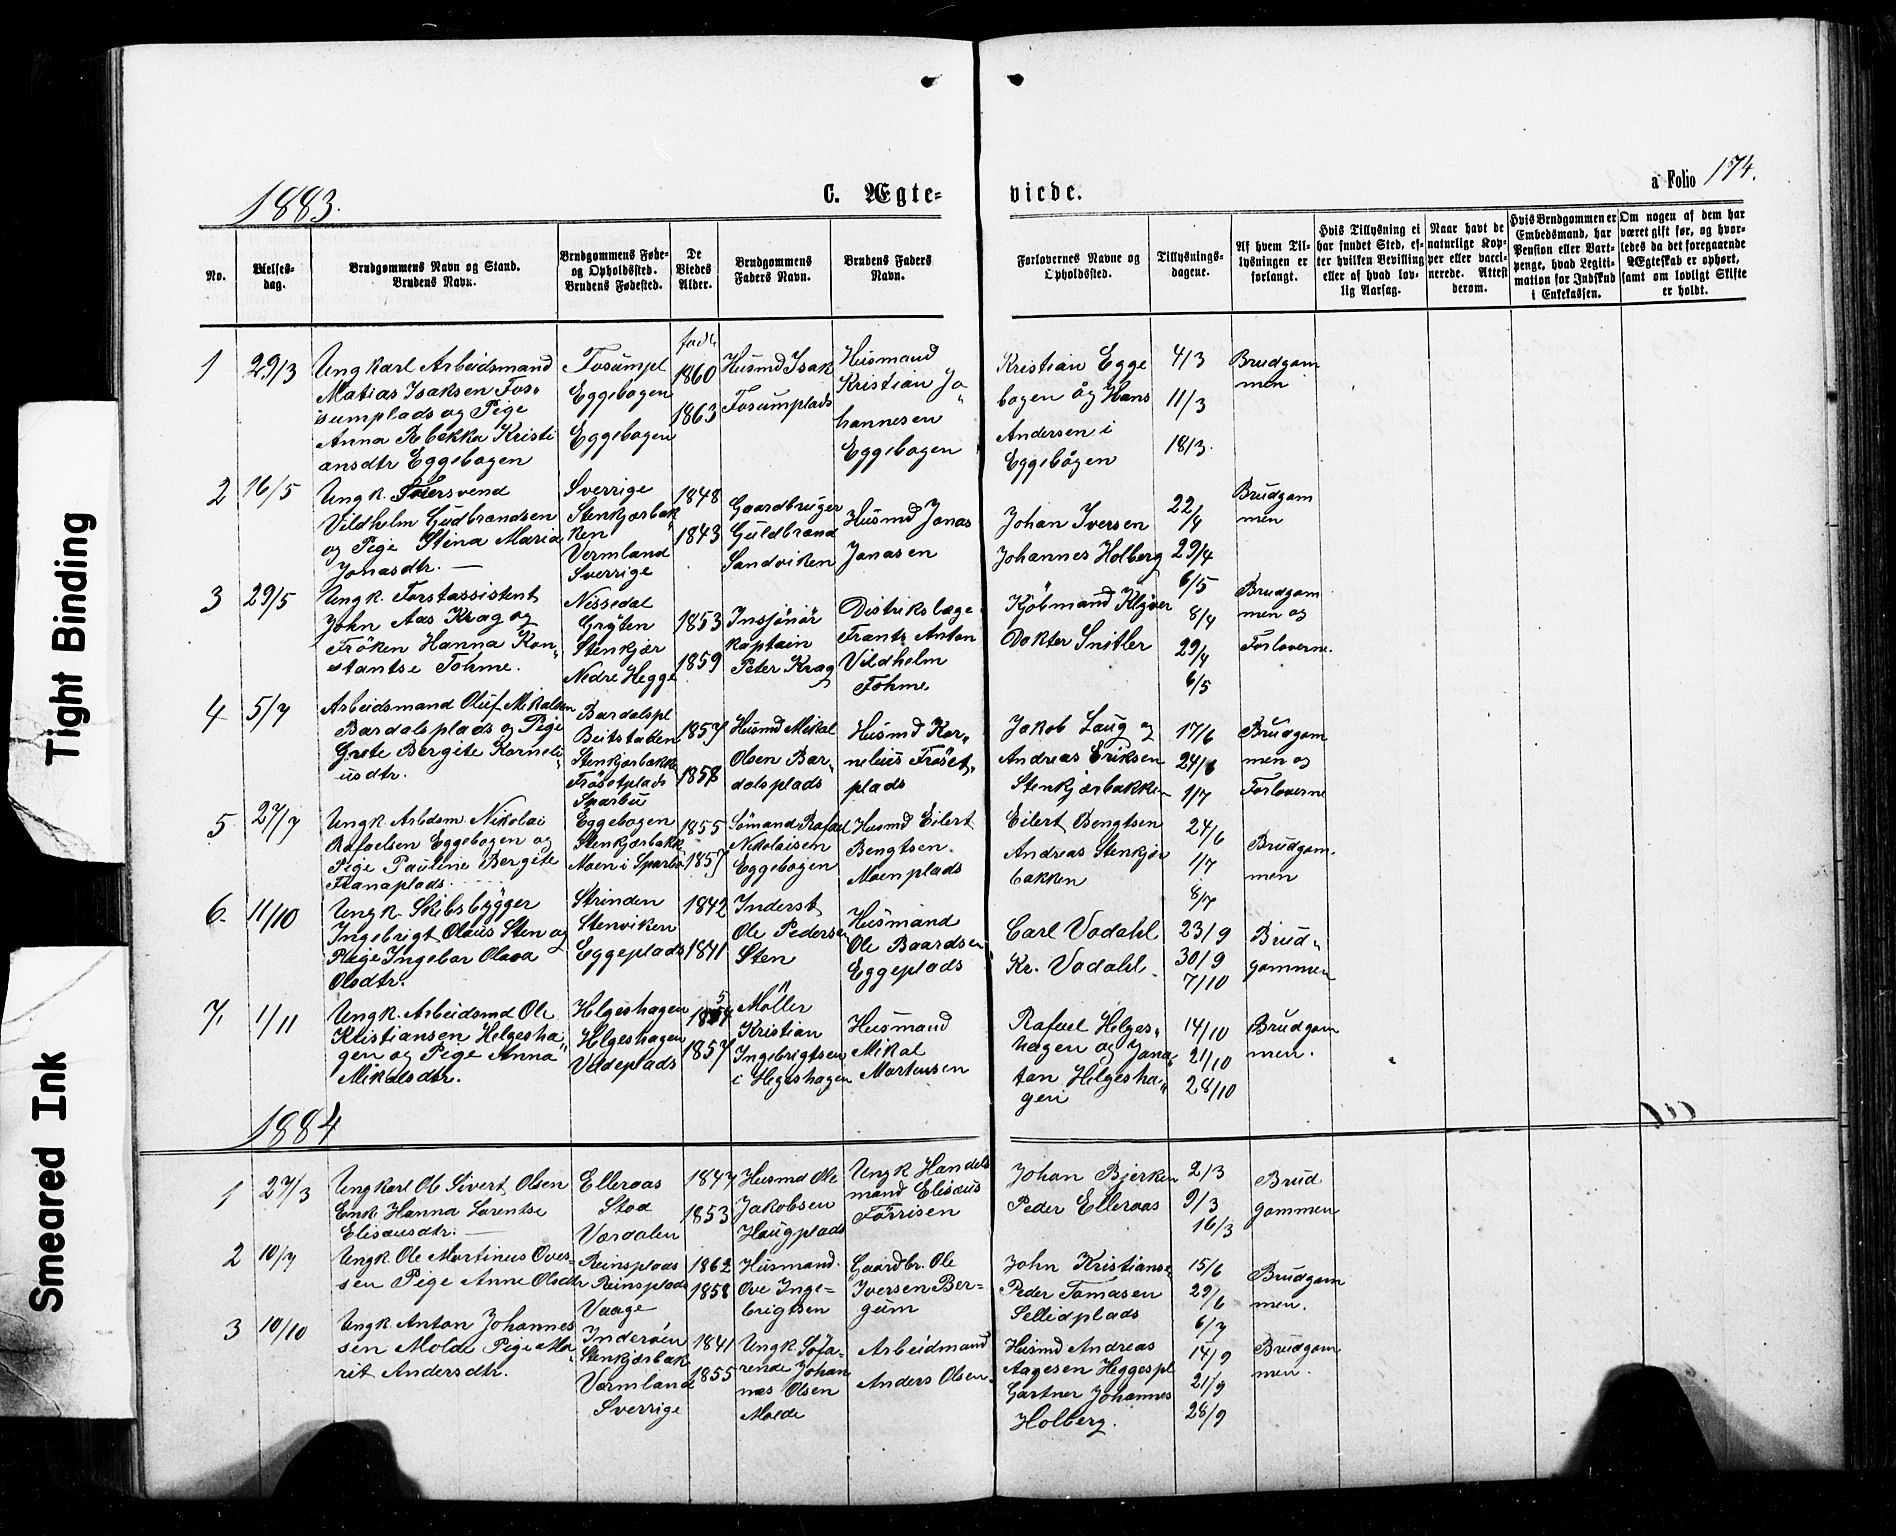 Tight Binding
Smeared Ink
1883.
C. Ægte-
viede.
a Folio 174.
No.
Vielses-
dag.
Brudgommens Navn og Stand.
Brudens Navn.
Brudgommens Føde-
og Opholdssted.
Brudens Fødested.
De
Viedes
Alder.
Brudgommens
Faders Navn.
Brudens Faders
Navn.
Forlovernes Navne og
Opholdssted.
Tillysnings-
dagene.
Af hvem Til-
lysningen er
forlangt.
Hvis Tillysning ei
har fundet Sted, ef-
ter hvilken Bevilling
eller af hvad lov-
lig Aarsag.
Naar havt de
naturlige Kop-
per eller vacci-
nerede. Attest
derom.
Hvis Brudgommen er
Embedsmand, har
Pension eller Vart-
penge, hvad Legiti-
mation for Indskud
i Enkekassen.
Om nogen af dem har
været gift før, og hvor-
ledes da det foregaaende
Ægteskab er ophørt,
samt om lovligt Skifte
er holdt.
1
29/3
Ungkarl Arbeidsmand
Matias Isaksen Fos-
sumplads og Pige
Anna Rebekka Kristi
ansdtr Eggebogen
Fosumpl
Eggebogen
Eggebogen
født
1860
1863
Husmd Isak
Fosumplads
Husmand
Kristian Jo
hannesen
Eggebogen
Kristian Egge
bogen og Hans
Andersen i
Eggebogen
4/3
11/3
18/3.
Brudgom
men
2
16/5
Ungk. Feiersvend
Vildhelm Gudbrandsen
og Pige Stina Maria
Jonasdtr. —
Sverrige
Stenkjærbak
ken
Vermland
Sverrige
1848
1843
Gaardbruger
Guldbrand
Sandviken
Husmd Jonas
Jonasen
Johan Iversen
Johannes Holberg
22/4
29/4
6/5
Brudgom
men
3
29/5
Ungk. Forstassistent
John Aas Krag og
Frøken Hanna Kon-
stantse Fohme.
Nissedal
Grøten
Stenkjær
Nedre Hegge
1853
1859
Insjønør
kaptain
Peter Krag
Distrikslæge
Frants Anton
Vildholm
Fohme
Kjøbmand Klyver
Dokter Snitler
8/4
29/4
6/5
Brudgom
men og
Forloverne.
4
5/7
Arbeidsmand Oluf Mikalsen
Bardalsplads og Pige
Grete Bergite Korneli-
usdtr.
Bardalspl
Beitstaden
Stenkjærbakk
Frøsetplads
Sparbu
1857
1858
Husmd Mikal
Olsen Bar-
dalsplads
Husmd Kor-
nelius Frøset-
plads
Jakob Laug og
Andreas Eriksen
Stenkjærbakken
17/6
24/6
1/7
Brudgom
men og
Forloverne
5
27/7
Ungk Arbdsm Nikolai
Rafaelsen Eggebogen og
Pige Pauline Bergite
Flanaplads
Eggebogen
Stenkjærbakk
Moen i Sparbu
1855
1857
Sømand Rafael
Nikolaisen
Eggebogen
Husmd Eilert
Bengtsen
Moenplads
Eilert Bengtsen
Andreas Stenkjær
bakken
24/6
1/7
8/7
Brudgom-
men
6.
11/10
Ungk. Skibsbygger
Ingebrigt Olaus Sten og
Pige Ingebor Olava
Olsdtr.
Strinden
Stenviken
Eggeplads
1842
1841
Inderst
Ole Pedersen
Sten
Husmand
Ole Baardsen
Eggeplads
Carl Vodahl
Kr. Vodahl
23/9
30/9
7/10
Brud-
gommen
7.
1/11
Ungk. Arbeidsmd Ole
Kristiansen Helgesha-
gen og Pige Anna
Mikalsdtr.
Helgeshagen
Helgeshagen
Veldeplads
1857
Møller
Kristian
Ingebrigtsen
i Hegeshagen
Husmand
Mikal
Mortensen
Rafael Helges-
hagen og Jona-
tan Helgesha-
gen
14/10
21/10
28/10
Brudgom
men.
1884
1
27/3
Ungkarl Ole Sivert Olsen
Enk. Hanna Lorentse
Elisæusdtr. —
Elleraas
Stod
Værdalen
1847
1853
Husmd Ole
Jakobsen
Haugplads
Ungk Handels
mand Elisæus
Førrisen
Johan Bjerken
Peder Elleraas
2/3
9/3
16/3
Brud
gommen
2
10/7
Ungk Ole Martinus Oves-
sen Pige Anne Olsdtr
Reinsplads
Reinsplads
Vaage
1862
1858
Husmand.
Ove Inge-
brigtsen
Gaardbr. Ole
Iversen Ber-
gum
John Kristianse
Peder Tomasen
Sellidplads
15/6
29/6
6/7
Brudgom
men.
3
10/10
Ungk Anton Johannes
sen Molde Pige Ma-
rit Andersdtr.
Inderøen
Stenkjærbak
Værmland
Sverrige
1841
1855
Ungk Søfa-
rende Johan
nes Olsen
Molde
Arbeidmand
Anders Olsen.
Husmd Andreas
Aagesen Heggespl
Gartner Johannes
Holberg.
14/9
21/9
28/9
Brudgom
men.